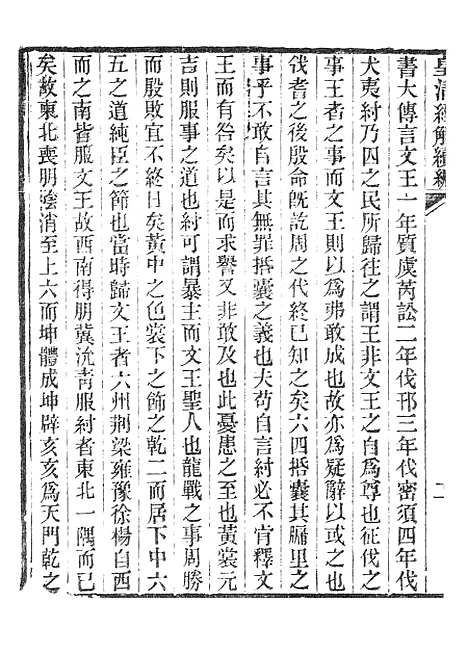 皇清經解續編
二
書大傳言文王一年質虞芮訟二年伐邘三年代密須四年代
犬夷紂乃囚之民所歸往之謂王非文王之自爲尊也征伐之
事王者之事而文王則以爲弗敢成也故亦爲疑辭以或之也
伐耆之後殷命旣訖周之代終已知之矣六四括囊其羑里之
事乎不敢自言其無罪括囊之義也夫苟自言紂必不肯釋文
王而有咎矣以是而求譽又非敢及也此憂患之至也黃裳元
吉則服事之道也紂可謂暴主而文王聖人也龍戰之事周勝
而殷敗宜不終日矣黃中之色裳下之飾之乾二而居下中六
五之道純臣之節也當時歸文王者六州荆梁雍豫徐楊自西
而之南皆服文王故西南得朋冀沇靑服紂者東北一隅而已
矣故東北喪朋陰消至上六而坤體成坤辟亥亥爲天門乾之